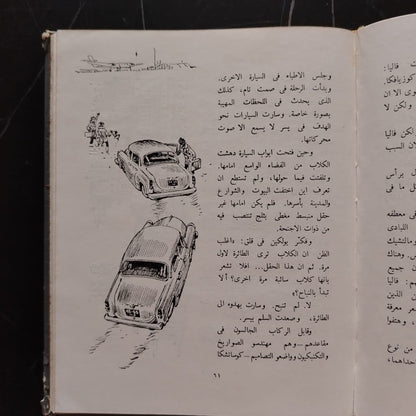 وجلس الاطباء في السيارة الاخرى.
وبدأت الرحلة في صمت تام، كذلك
الذي يحدث في اللحظات المهيبة
بصورة خاصة. وسارت السيارات نحو
الهدف في يسر لا يسمع الا صوت
محركاتها.
وحين فتحت ابواب السيارة دهشت
الكلاب من الفضاء الواسع امامها.
وتلفتت فيما حولها، ولم تستطع ان
تعرف اين اختفت البيوت والشوارع
والمدينة بأسرها. فلم يكن امامها غير
حقل منبسط مغطى بثلج تنتصب فيه
من ذوات الاجنحة.
وفكر يولكين في قلق: «اغلب
الظن ان الكلاب ترى الطائرة لاول
مرة. ثم ان هذا الحقل... افلا تشعر
بانها كلاب سائبة مرة اخرى؟ ألا
تبدأ بالنباح؟»
لا. لم تنبح. وسارت بهدوء الى
الطائرة، وصعدت السلم بيسر.
وقابل الركاب الجالسون في
مقاعدهم — وهم مهندسو الصواريخ
والتكنيكيون وواضعو التصاميم — كوساتشكا
٦١
ت قاليا:
وى الا ان
ولكن لا
ان السبب
ل برأس
فى معطفه
اللبادى
وهناك
م: قاليا
الذين
معرفة
من نوع
حداهما،